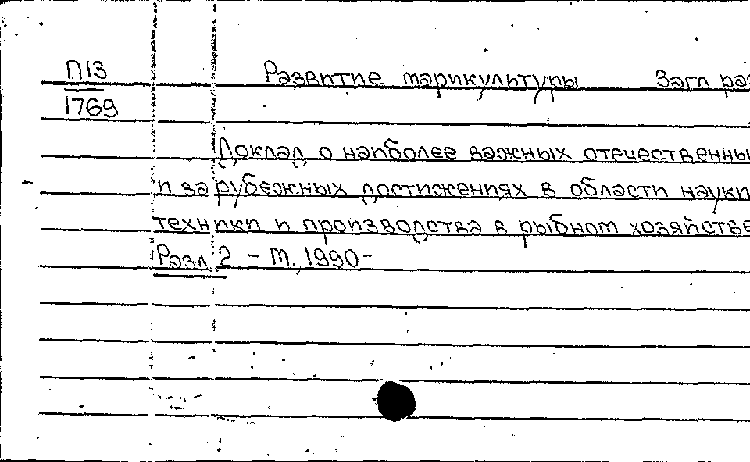 П13 Развитие марикультуры Загл раз
1769
Доклад о наиболее важных отечественны
и зарубежных достижениях в области науки
техники и производства в рыбном хозяйстве
Разд 2 – М., 1990–